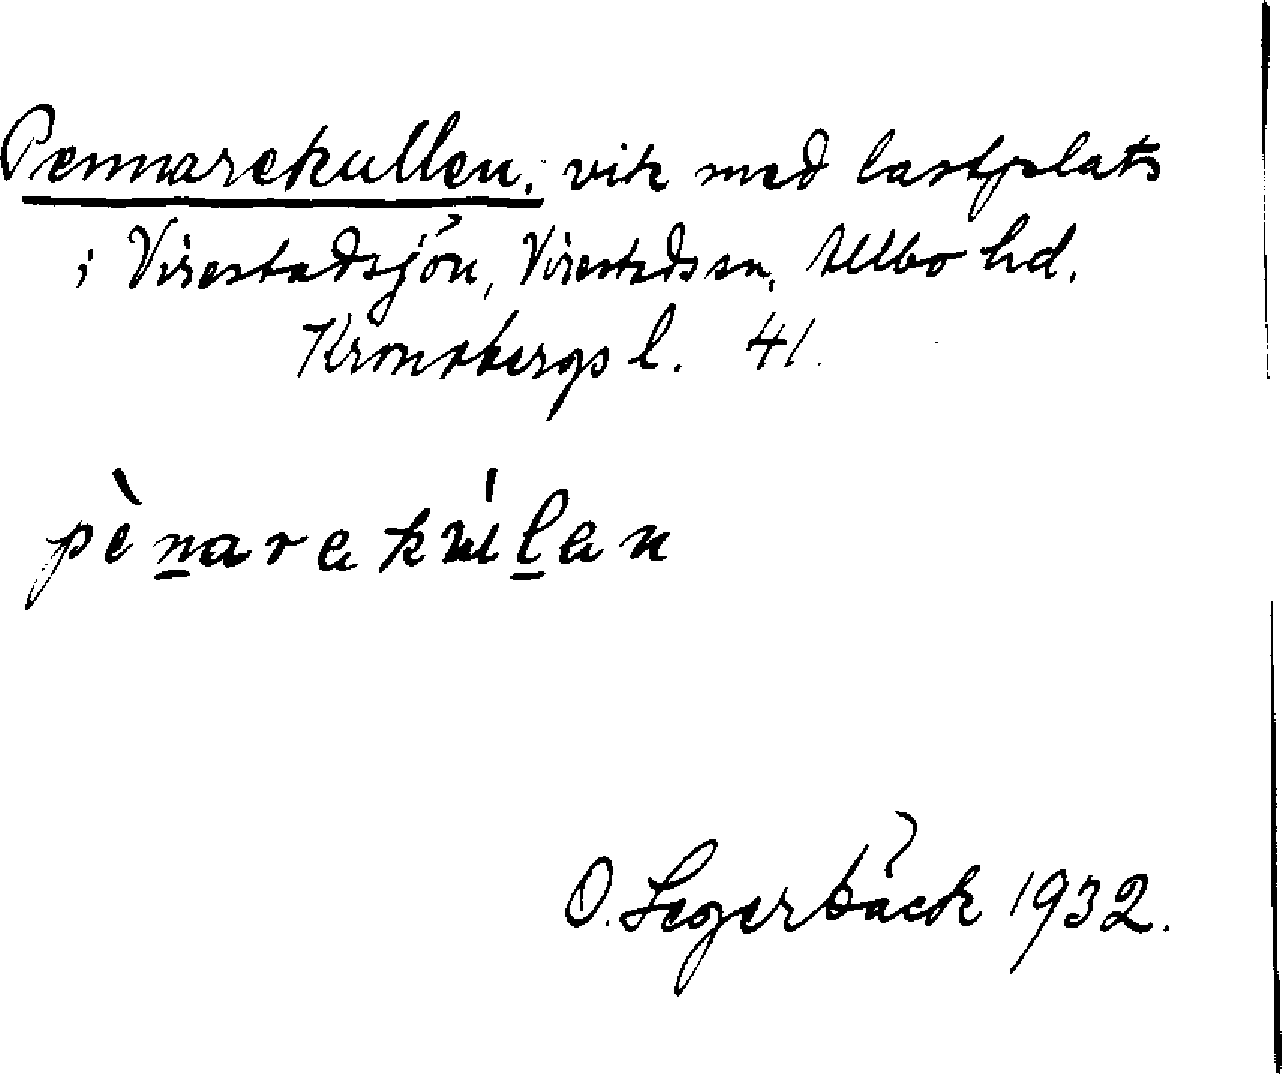 Pennarekullen, vik med lastplats
i Virestadsjön, Virestads sn, Allbo hd.
Kronobergs l. 41.
pènarekúlen
O. Segerbäck 1932.